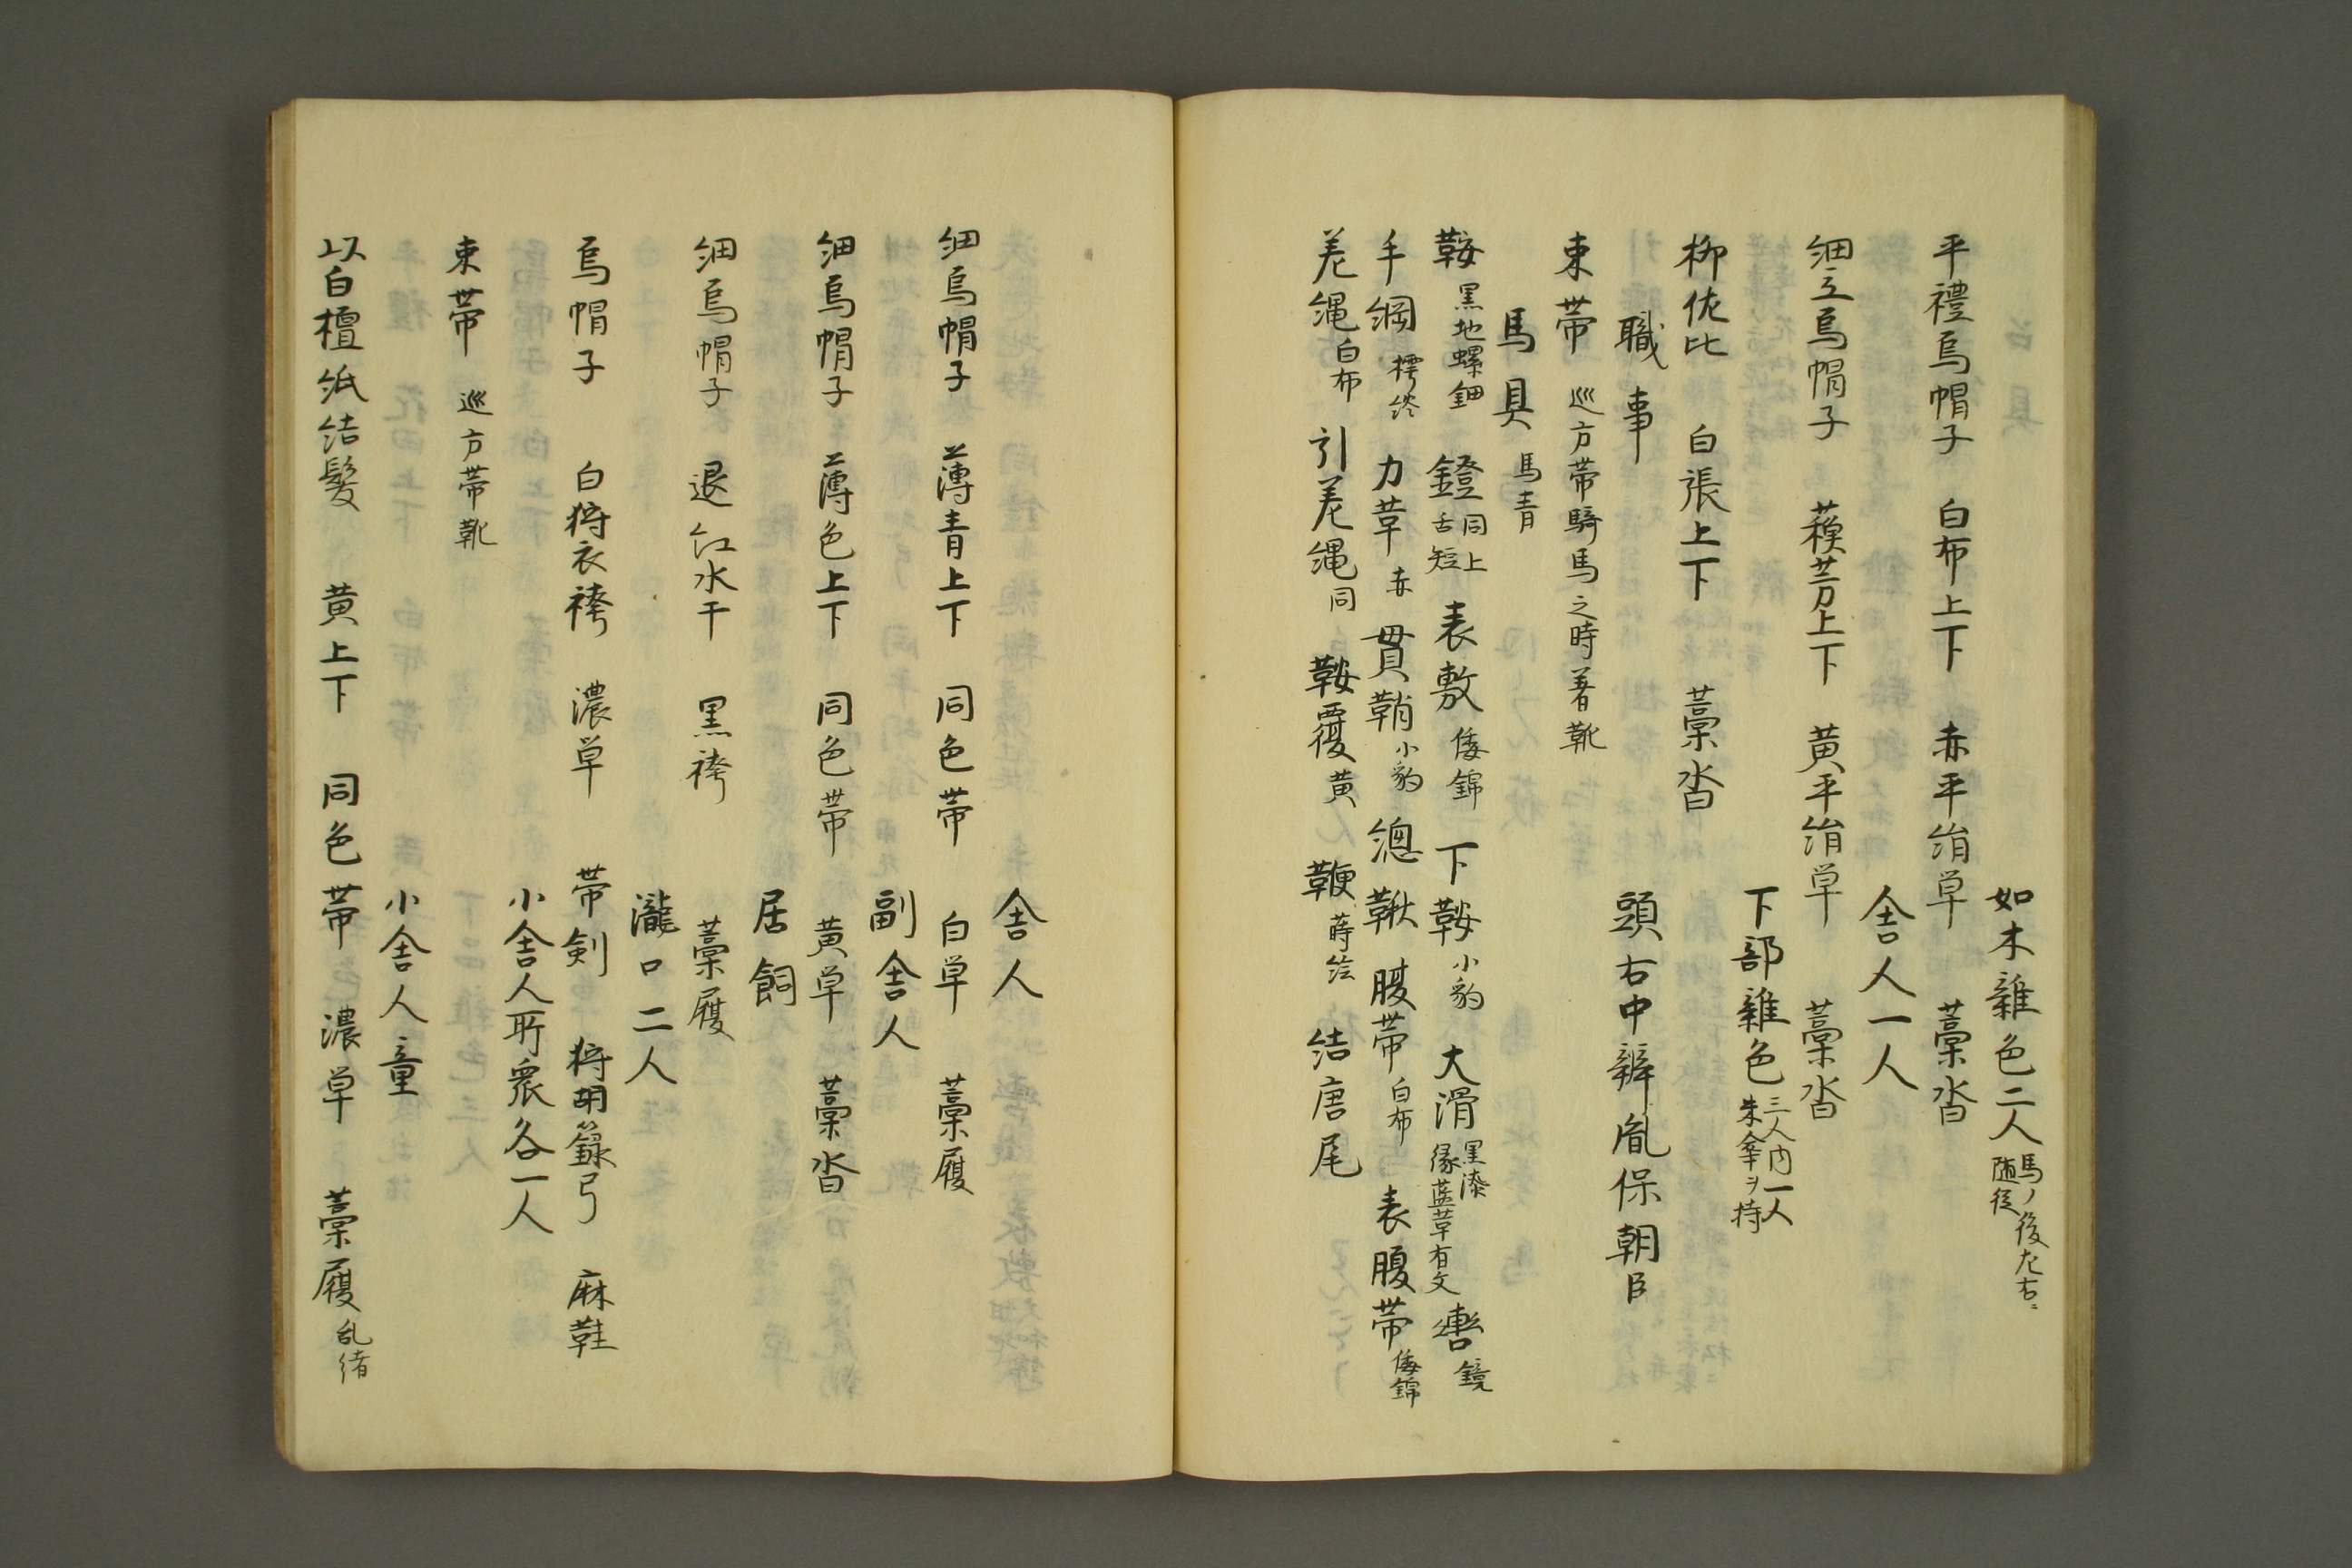 如木雜色二人 馬ノ後左右ニ随従
平禮烏帽子 白布上下 赤平絹単 藁沓
舎人一人
細立烏帽子 蘓芳上下 黄平絹単 藁沓
下部雜色 三人内一人朱傘ヲ持
柳佐比 白張上下 藁沓
職事 頭右中辨胤保朝臣
束帯 巡方帯騎馬之時著靴
馬具 馬青
鞍 黒地螺鈿 鐙 同上舌短 表敷 倭錦 下鞍 小豹 大滑 黒漆縁藍革有文 轡 鏡
手綱 力革 赤 貫鞘 小豹 總鞦 腹帯 白布 表腹帯 倭錦
差縄 白布 引差縄 同 鞍覆 黄 鞭 蒔絵 結唐尾
舎人
細烏帽子 薄青上下 同色帯 白単 藁履
副舎人
細烏帽子 薄色上下 同色帯 黄単 藁沓
居飼
細烏帽子 退紅水干 黒袴 藁履
瀧口二人
烏帽子 白狩衣袴 濃単 帯剣 狩胡籙弓 麻鞋
小舎人所衆各一人
束帯 巡方帯靴
小舎人童
以白檀紙結髪 黄上下 同色帯 濃単 藁履 乱緒